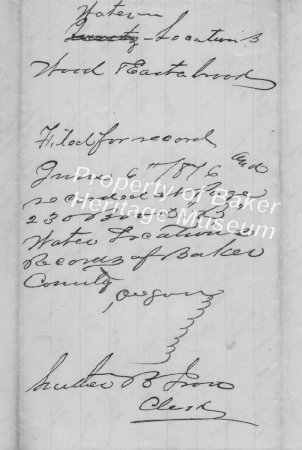 Water
Location
Wood & Eastabrook
Filed for record
June 6th 1876 and
recorded at Page
Water Location
Records of Baker
County,
Oregon
Luther B Ison
Clerk
Property of Baker
Heritage Museum